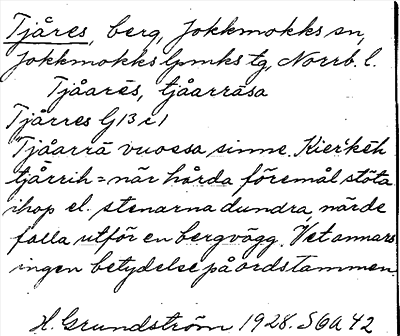 Tjåres, berg, Jokkmokks sn,
Jokkmokks lpmks tg, Norrb. l.
Tjåarēs, tjåarrāsa
Tjårres G13 c1
Tjåarrā vuossa sinne. Kier'kēh
tjårrih = när hårda föremål stöta
ihop el. stenarna dundra, närde
falla utför en bergvägg. Vet annars
ingen betydelse på ordstammen.
H. Grundström 1928 SOA 42